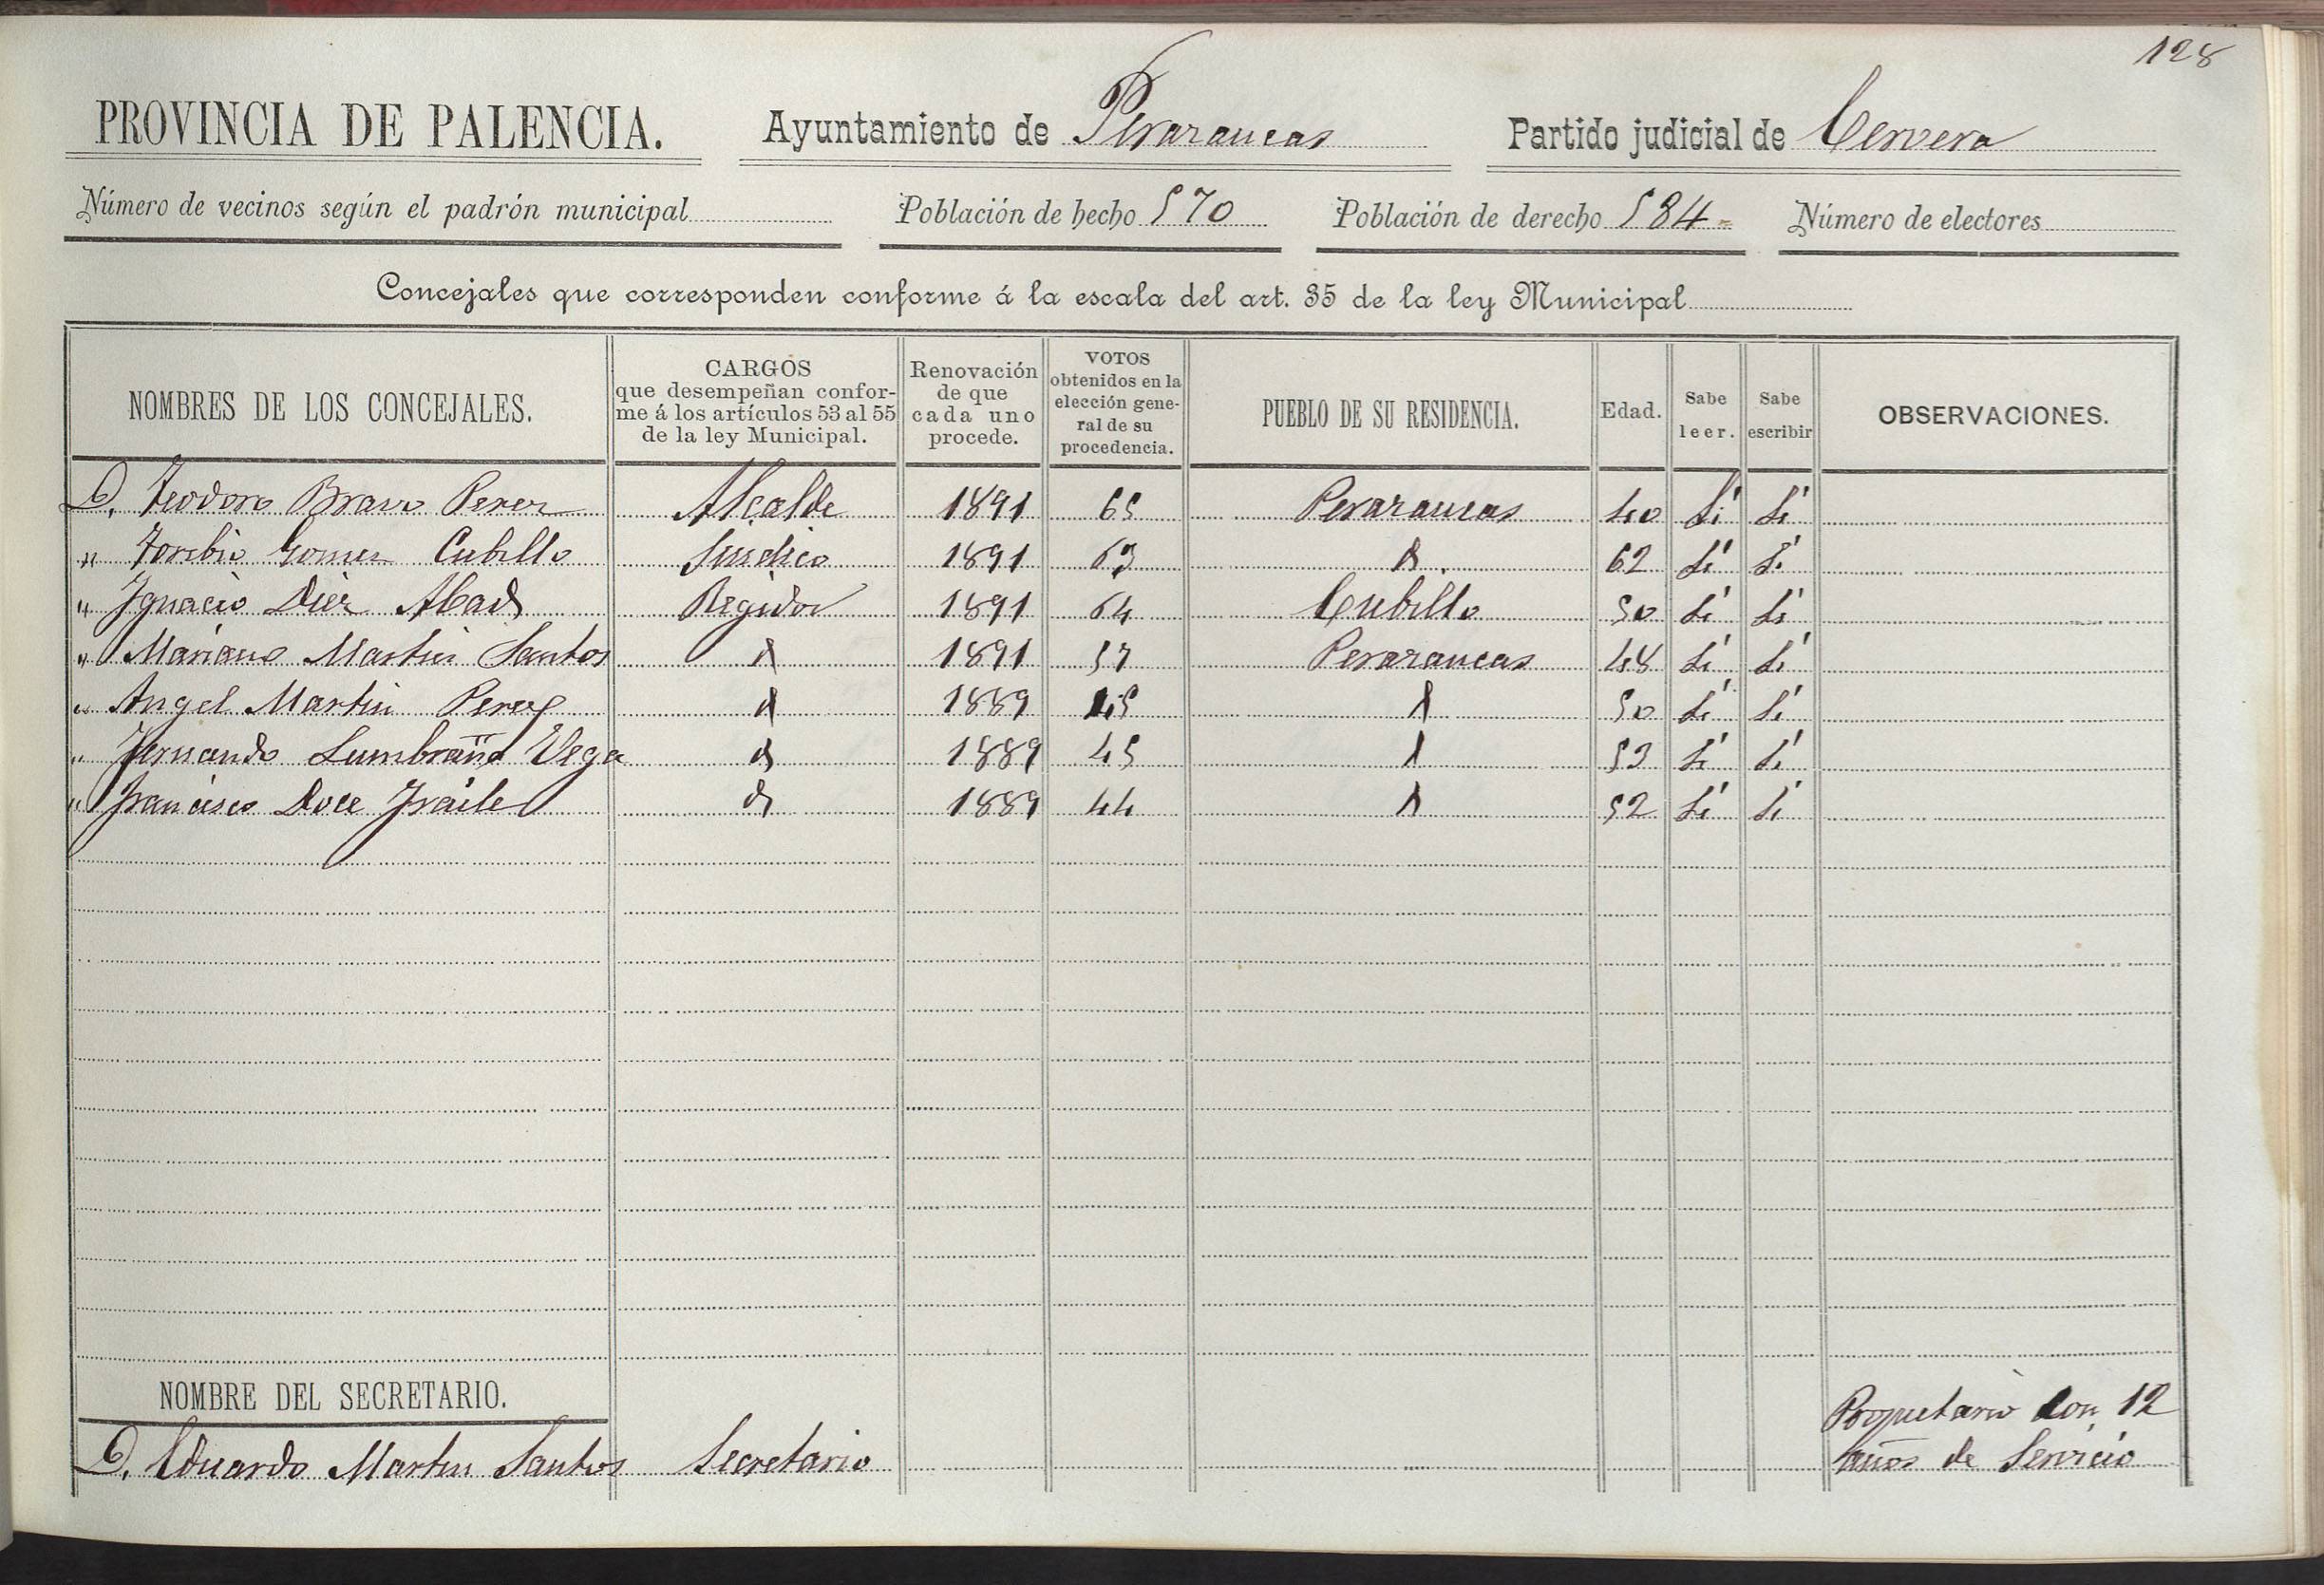 128
PROVINCIA DE PALENCIA. Ayuntamiento de Perazancas Partido judicial de Cervera
Número de vecinos según el padrón municipal Población de hecho 570 Población de derecho 584 Número de electores
Concejales que corresponden conforme á la escala del art. 35 de la ley Municipal
NOMBRES DE LOS CONCEJALES. CARGOS que desempeñan confor-me á los artículos 53 al 55 de la ley Municipal. Renovación de que cada uno procede. VOTOS obtenidos en la elección gene-ral de su procedencia. PUEBLO DE SU RESIDENCIA. Edad. Sabe leer. Sabe escribir OBSERVACIONES.
D. Teodoro Bravo Perez Alcalde 1891 65 Perazancas 40 Si Si
" Toribio Gomez Cubillo Sindico 1891 63 d 62 Si Si
" Ignacio Diez Abad Regidor 1891 64 Cubillo 50 Si Si
" Mariano Martin Santos d 1891 57 Perazancas 48 Si Si
" Angel Martin Perez d 1889 45 d 50 Si Si
" Fernando Lumbraña Vega d 1889 45 d 53 Si Si
" Francisco Doce Fraile d 1889 44 d 52 Si Si
NOMBRE DEL SECRETARIO.
D. Eduardo Martin Santos Secretario Propietario con 12
años de Servicio